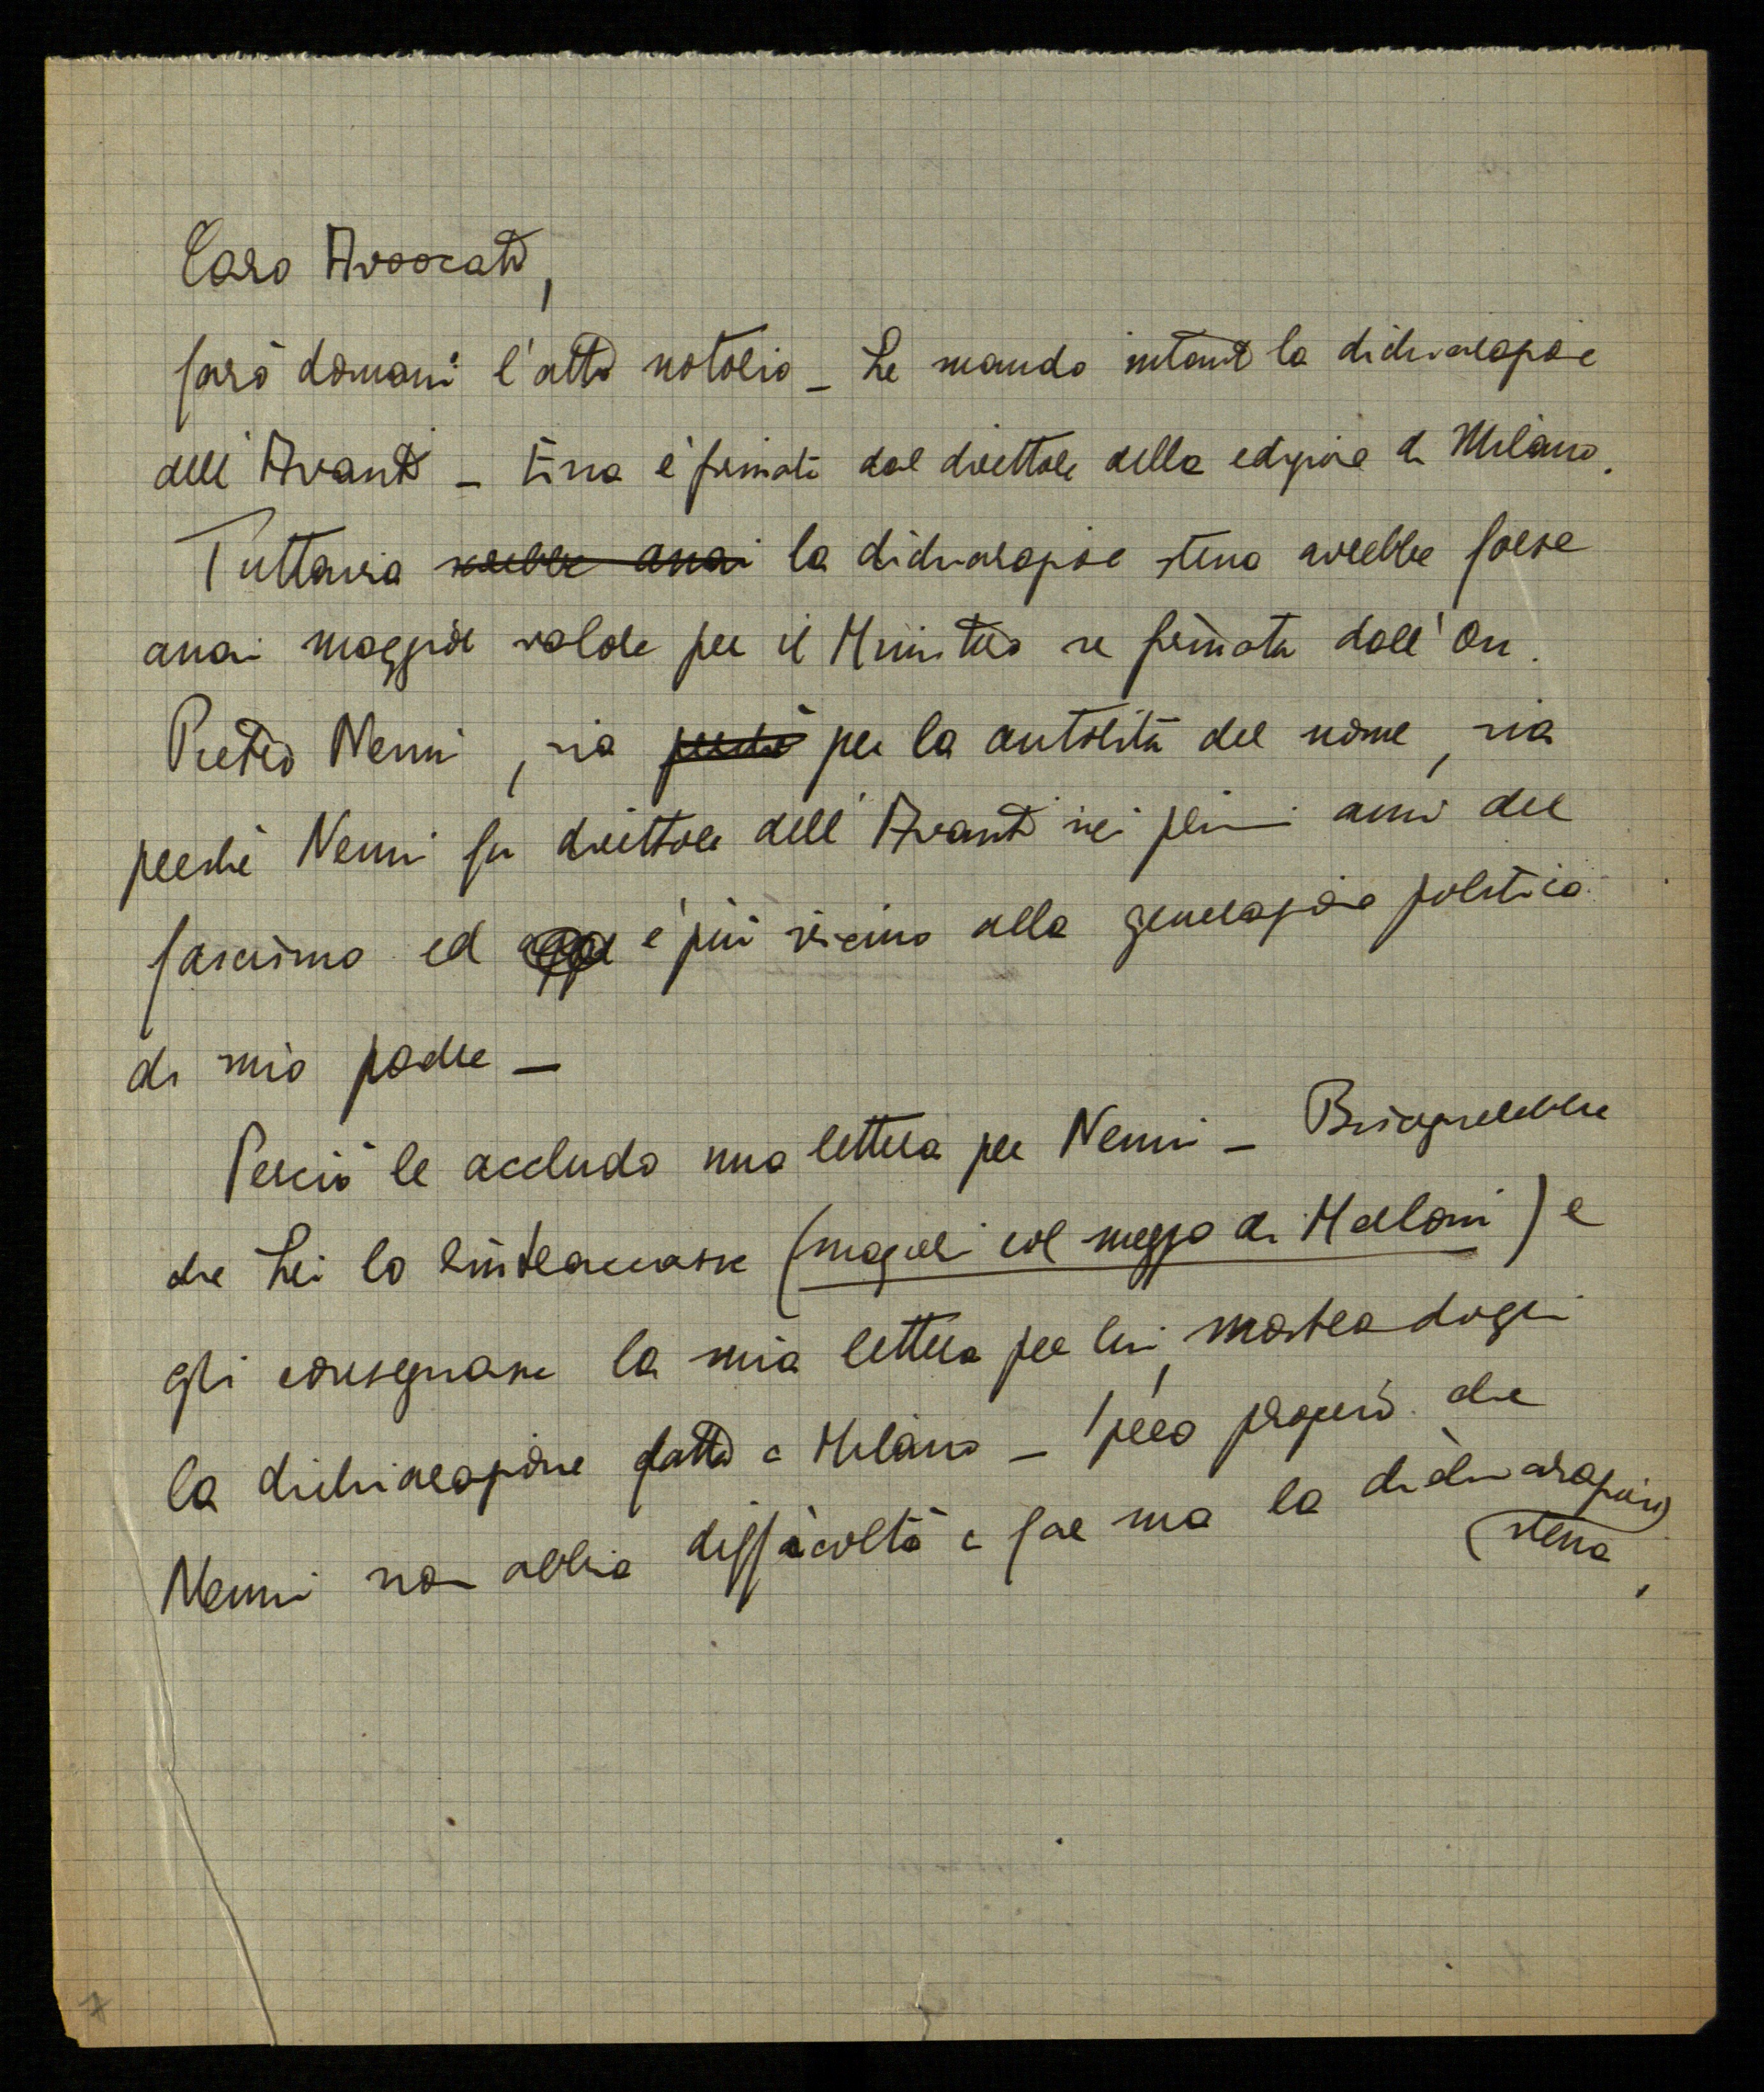 Caro Avvocato,
farò domani l'atto notorio – Le mando intanto la dichiarazione
dell'Avanti – Essa è firmata dal direttore della edizione di Milano.
Tuttavia sarebbe assai la dichiarazione stessa avrebbe forse
assai maggior valore per il Ministero se firmata dall'On.
Pietro Nenni, sia perché per la autorità del nome, sia
perché Nenni fu direttore dell'Avanti nei primi anni del
fascismo ed è più vicino alla generazione politica
di mio padre –
Perciò le accludo una lettera per Nenni – Bisognerebbe
che Lei lo rintracciasse (magari col mezzo di Merloni) e
gli consegnasse la mia lettera per lui, mostrandogli
la dichiarazione fatta a Milano – Spero proprio che
Nenni non abbia difficoltà a far sua la dichiarazione
stessa.
7